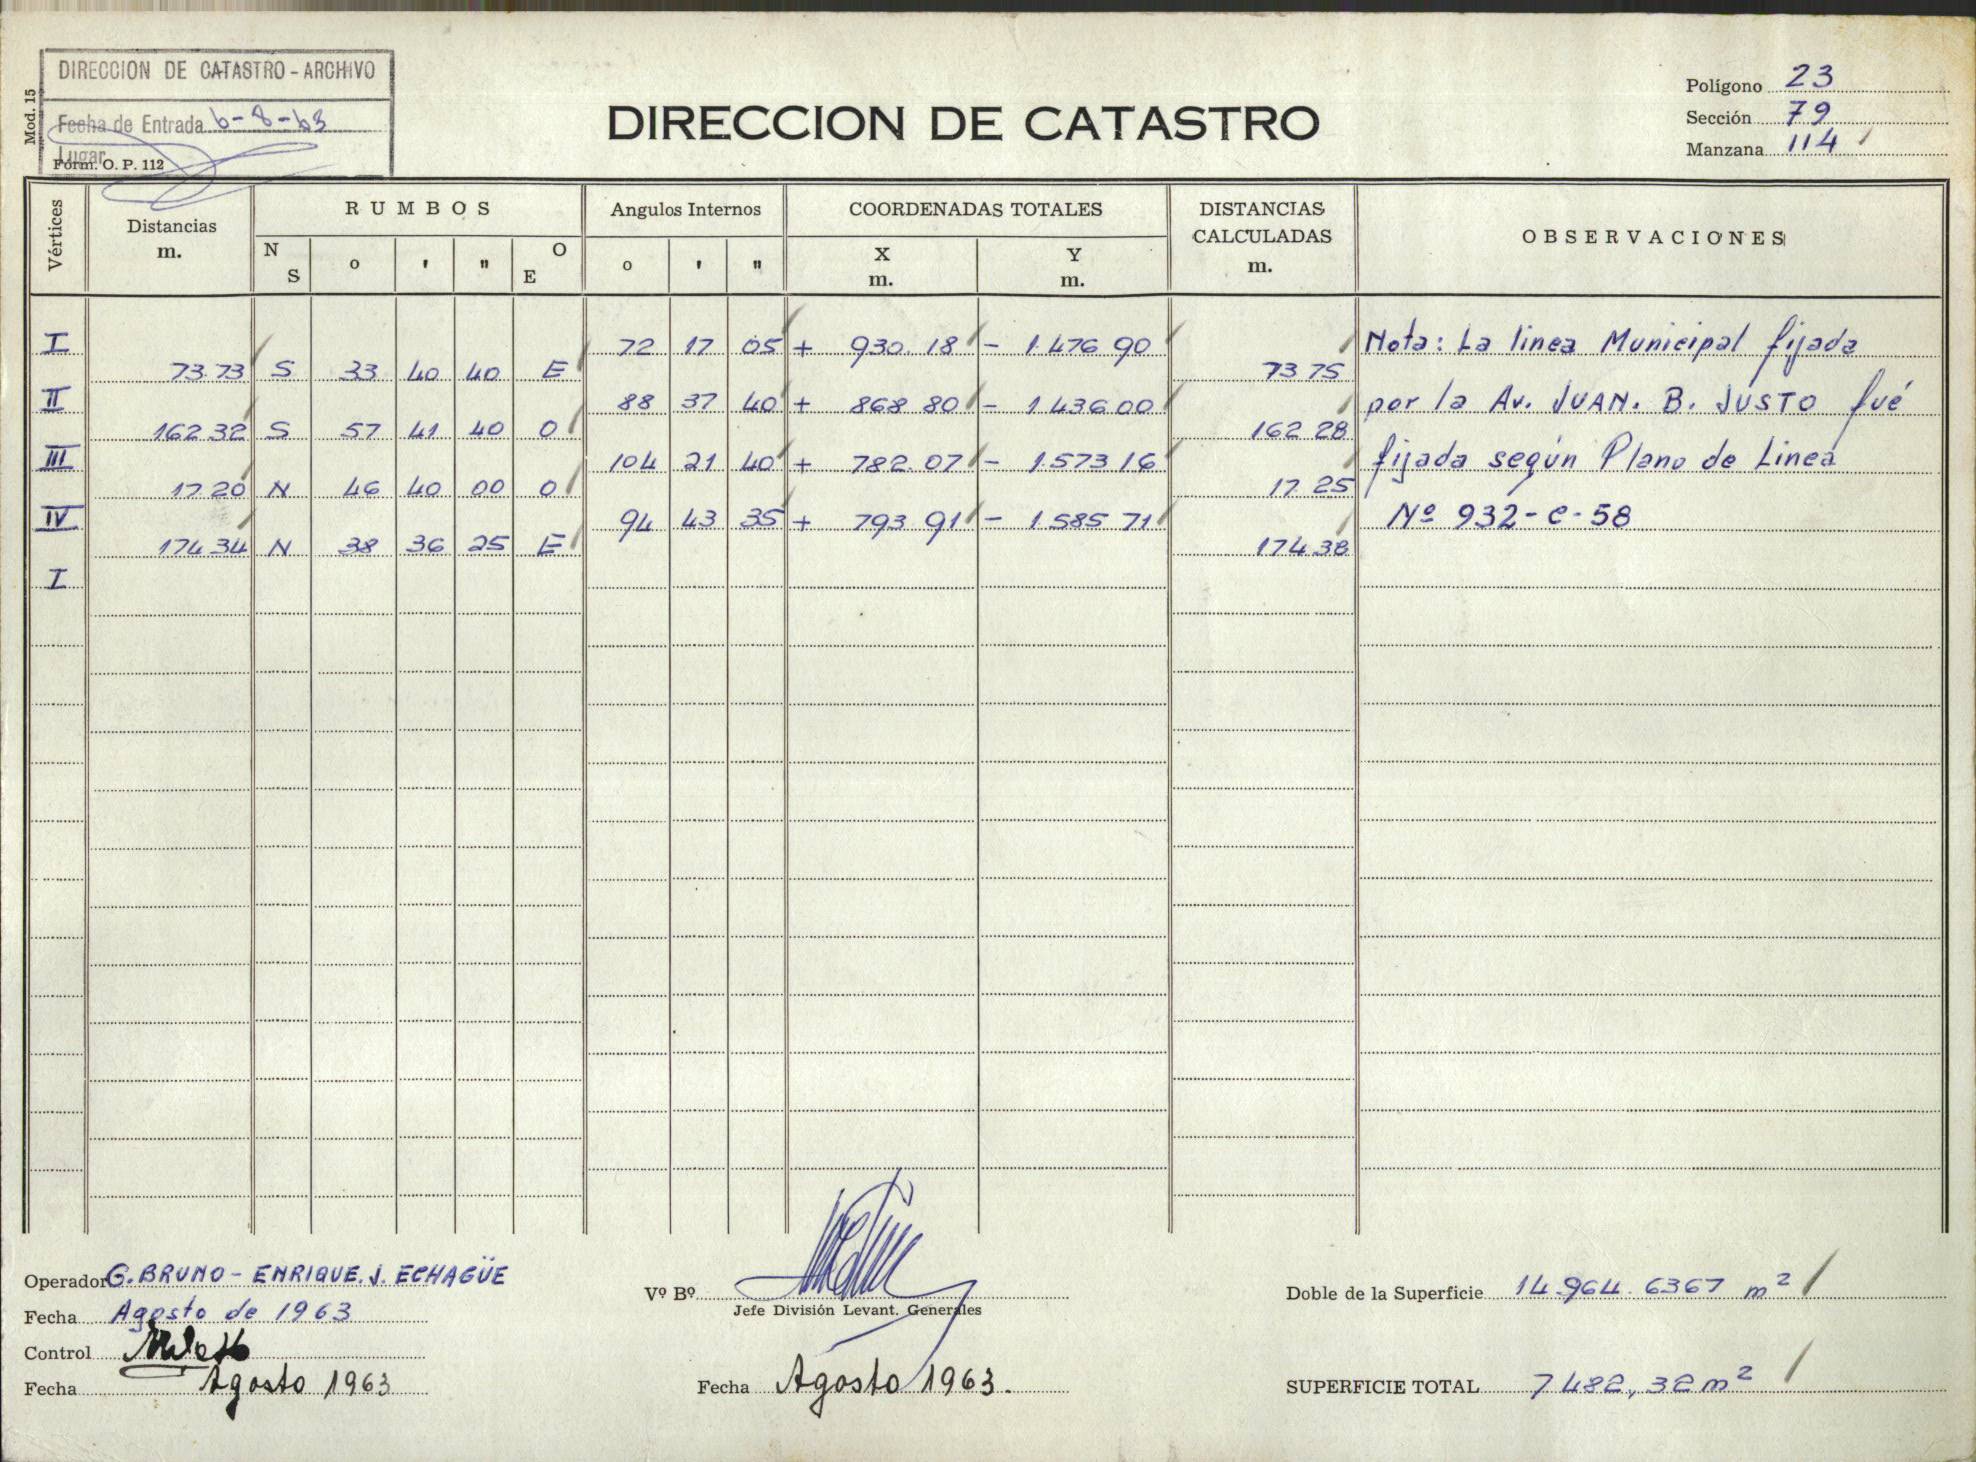 DIRECCION DE CATASTRO - ARCHIVO
Fecha de Entrada 6-8-63
Lugar
Mod. 15
Form. O. P. 112
DIRECCION DE CATASTRO
Polígono 23
Sección 79
Manzana 114
Vértices
Distancias
m.
RUMBOS
N S
o ' "
O E
Angulos Internos
o ' "
COORDENADAS TOTALES
X
m.
Y
m.
DISTANCIAS
CALCULADAS
m.
OBSERVACIONES
I 72 17 05 + 930.18 - 1.476 90
73.73 S 33 40 40 E 73 75
II 88 37 40 + 868 80 - 1 436 00
162 32 S 57 41 40 O 162 28
III 104 21 40 + 782.07 - 1.573 16
17.20 N 46 40 00 O 17.25
IV 94 43 35 + 793.91 - 1.585 71
174 34 N 38 36 25 E 174 38
I
Nota: La linea Municipal fijada
por la Av. JUAN. B. JUSTO fué
fijada según Plano de Linea
Nº 932-C-58
Operador G. BRUNO - ENRIQUE. J. ECHAGÜE
Fecha Agosto de 1963
Control
Fecha Agosto 1963
Vº Bº
Jefe División Levant. Generales
Fecha Agosto 1963.
Doble de la Superficie 14.964.6367 m²
SUPERFICIE TOTAL 7482,32 m²